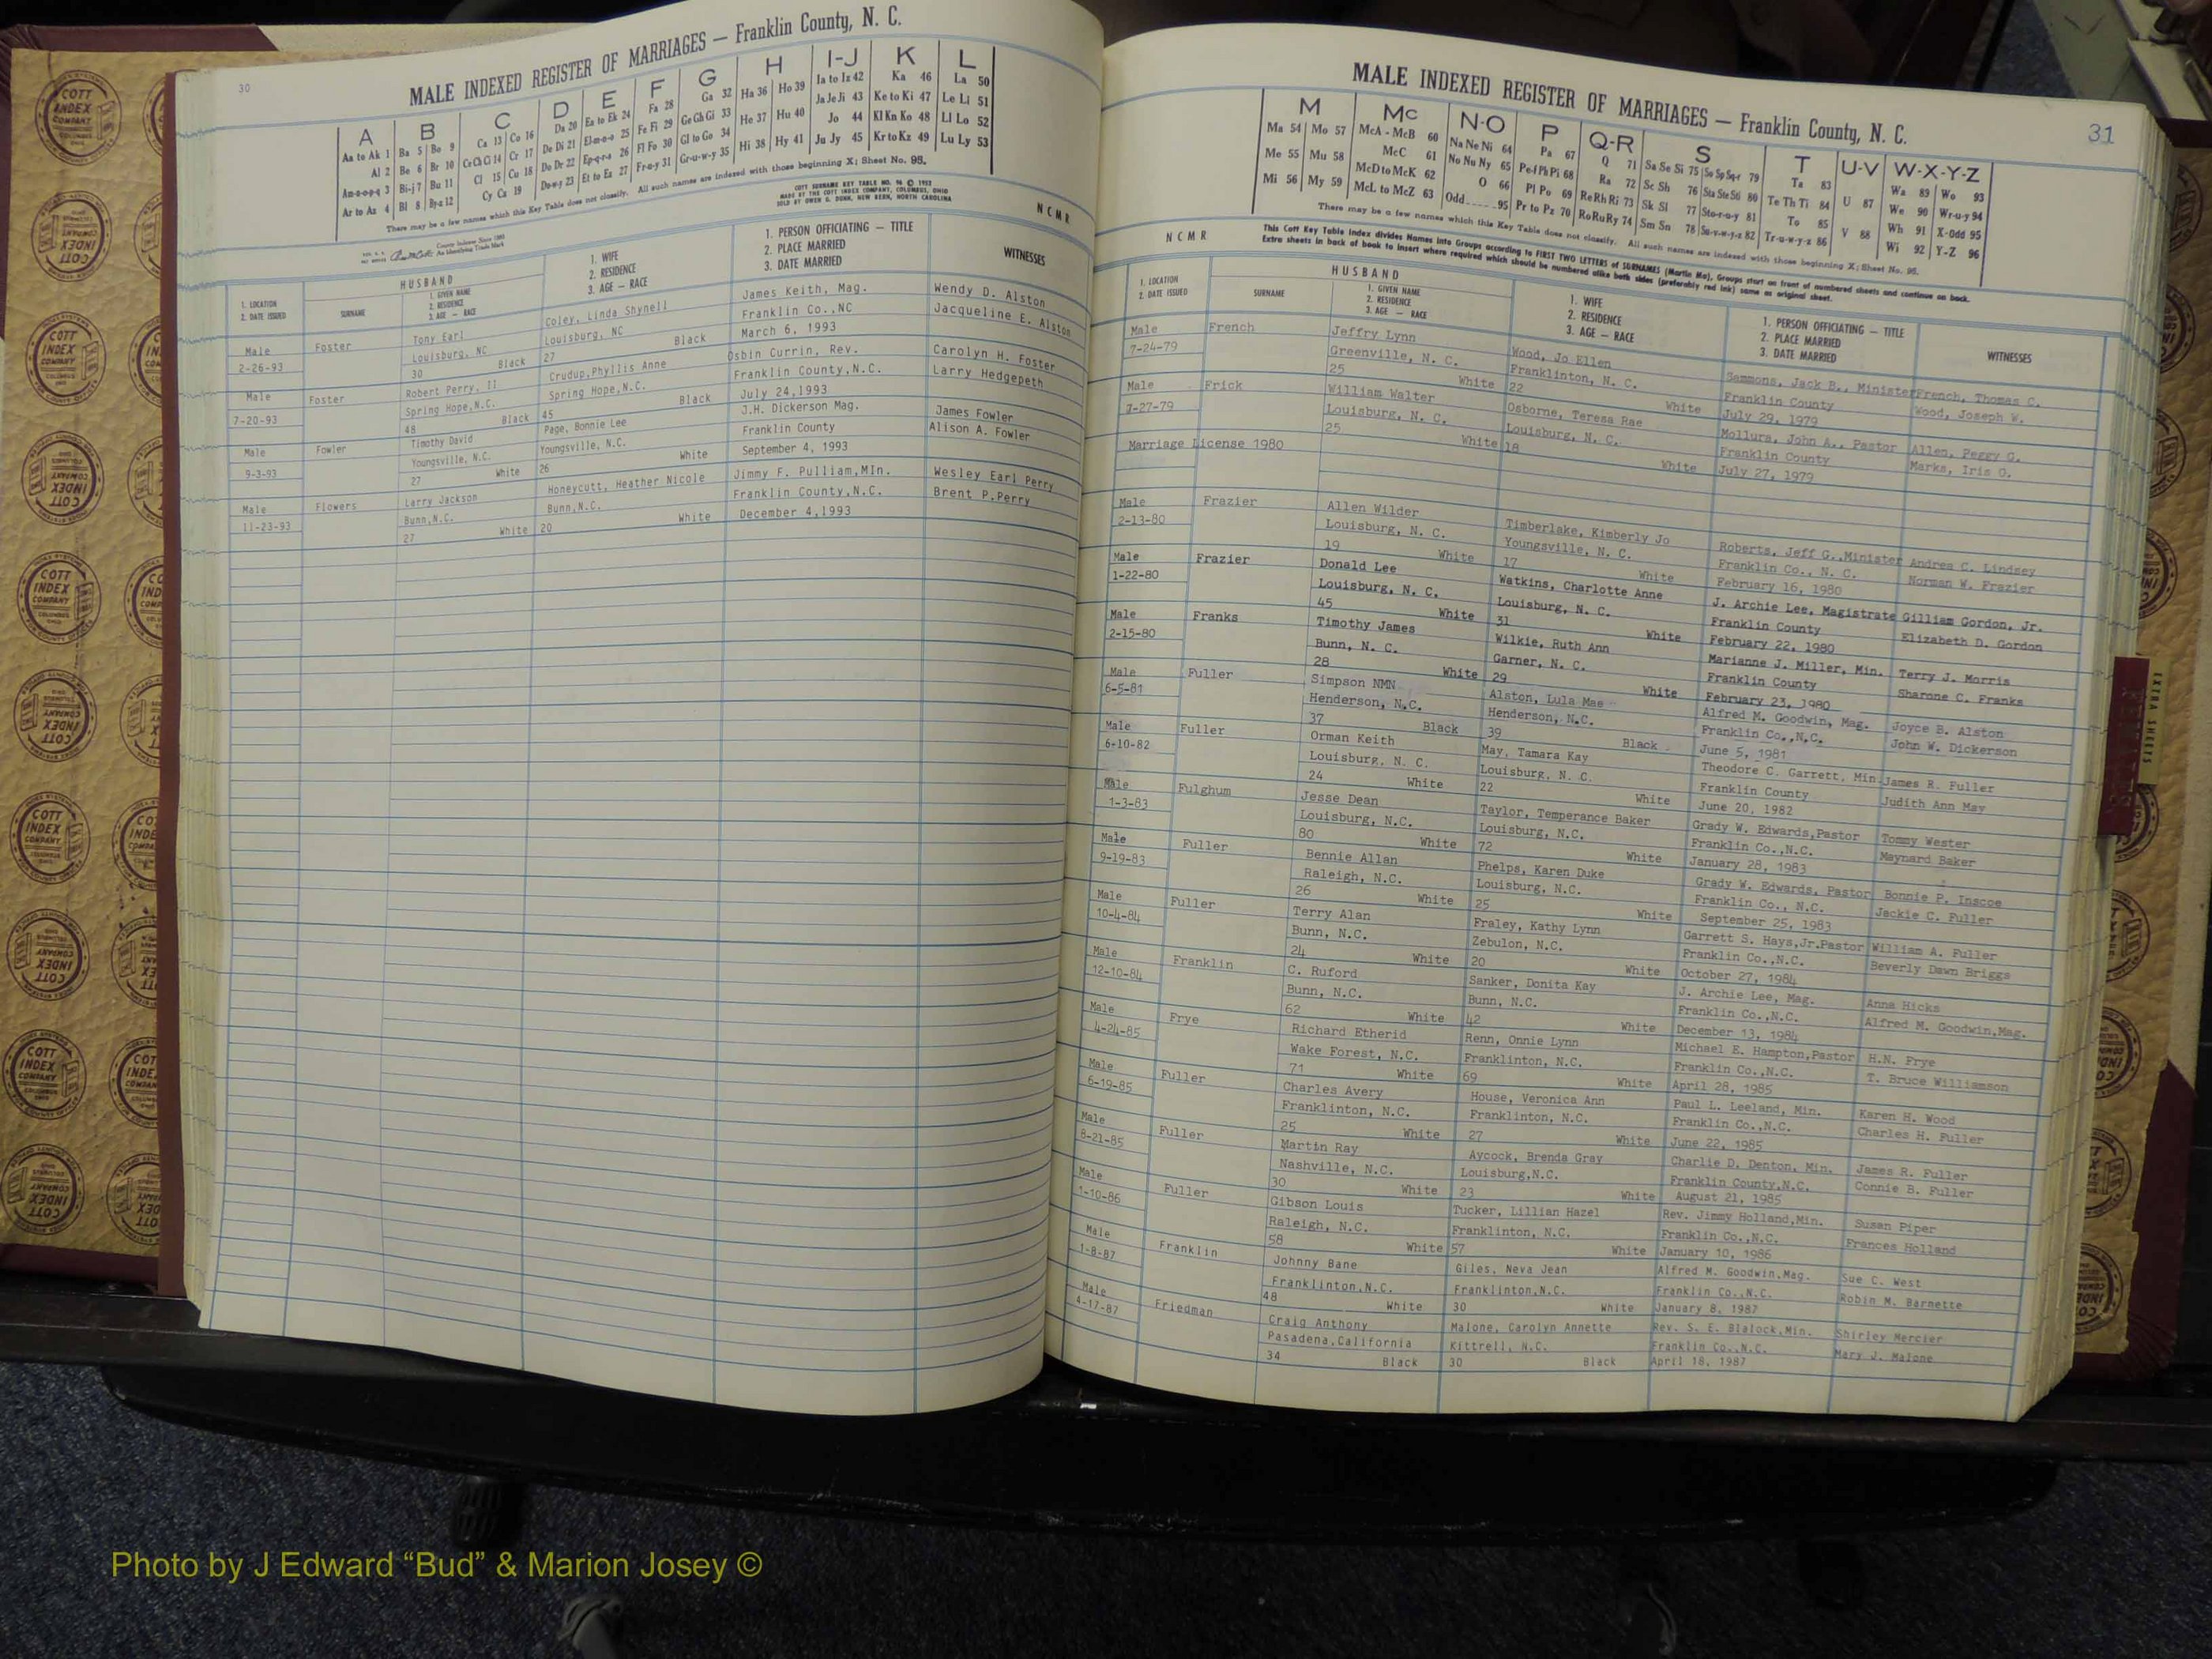 30
MALE INDEXED REGISTER OF MARRIAGES — Franklin County, N. C.
A B C D E F G H I-J K L
Aa to Ak 1 Ba 5 Bo 9 Ca 13 Co 16 Da 20 Ea to Ek 24 Fa 28 Ga 32 Ha 36 Ho 39 Ia to Iz 42 Ka 46 La 50
Al 2 Be 6 Br 10 Ce Ch Ci 14 Cr 17 De Di 21 El-m-n-o 25 Fe Fi 29 Ge Gh Gi 33 He 37 Hu 40 Ja Je Ji 43 Ke to Ki 47 Le Li 51
Am-n-o-p-q 3 Bi-j 7 Bu 11 Cl 15 Cu 18 Do Dr 22 Ep-q-r-s 26 Fl Fo 30 Gl to Go 34 Hi 38 Hy 41 Jo 44 Kl Kn Ko 48 Ll Lo 52
Ar to Az 4 Bl 8 By-z 12 Cy Cz 19 Du-w-y 23 Et to Ez 27 Fr-u-y 31 Gr-u-w-y 35 Ju Jy 45 Kr to Kz 49 Lu Ly 53
There may be a few names which this Key Table does not classify. All such names are indexed with those beginning X; Sheet No. 95.
COTT SURNAME KEY TABLE NO. 96 © 1952
MADE BY THE COTT INDEX COMPANY, COLUMBUS, OHIO
SOLD BY OWEN G. DUNN, NEW BERN, NORTH CAROLINA
County Indexes Since 1888
An Identifying Trade Mark
N C M R
1. LOCATION
2. DATE ISSUED
HUSBAND
SURNAME
1. GIVEN NAME
2. RESIDENCE
3. AGE — RACE
1. WIFE
2. RESIDENCE
3. AGE — RACE
1. PERSON OFFICIATING — TITLE
2. PLACE MARRIED
3. DATE MARRIED
WITNESSES
Male Foster Tony Earl Coley, Linda Shynell James Keith, Mag. Wendy D. Alston
2-26-93 Louisburg, NC Louisburg, NC Franklin Co.,NC Jacqueline E. Alston
30 Black 27 Black March 6, 1993
Male Foster Robert Perry, II Crudup,Phyllis Anne Osbin Currin, Rev. Carolyn H. Foster
7-20-93 Spring Hope,N.C. Spring Hope,N.C. Franklin County,N.C. Larry Hedgepeth
48 Black 45 Black July 24,1993
Male Fowler Timothy David Page, Bonnie Lee J.H. Dickerson Mag. James Fowler
9-3-93 Youngsville, N.C. Youngsville, N.C. Franklin County Alison A. Fowler
27 White 26 White September 4, 1993
Male Flowers Larry Jackson Honeycutt, Heather Nicole Jimmy F. Pulliam,MIn. Wesley Earl Perry
11-23-93 Bunn,N.C. Bunn,N.C. Franklin County,N.C. Brent P.Perry
27 White 20 White December 4,1993
31
MALE INDEXED REGISTER OF MARRIAGES — Franklin County, N. C.
M Mc N-O P Q-R S T U-V W-X-Y-Z
Ma 54 Mo 57 McA - McB 60 Na Ne Ni 64 Pa 67 Q 71 Sa Se Si 75 So Sp Sq-r 79 Ta 83 U 87 Wa 89 Wo 93
Me 55 Mu 58 McC 61 No Nu Ny 65 Pe-f Ph Pi 68 Ra 72 Sc Sh 76 Sta Ste Sti 80 Te Th Ti 84 V 88 We 90 Wr-u-y 94
Mi 56 My 59 McD to McK 62 O 66 Pl Po 69 Re Rh Ri 73 Sk Sl 77 Sto-r-u-y 81 To 85 Wh 91 X-Odd 95
McL to McZ 63 Odd 95 Pr to Pz 70 Ro Ru Ry 74 Sm Sn 78 Su-v-w-y-z 82 Tr-u-w-y-z 86 Wi 92 Y-Z 96
There may be a few names which this Key Table does not classify. All such names are indexed with those beginning X; Sheet No. 95.
N C M R
This Cott Key Table Index divides Names into Groups according to FIRST TWO LETTERS of SURNAMES (Martin Ma), Groups start on front of numbered sheets and continue on back.
Extra sheets in back of book to insert where required which should be numbered alike both sides (preferably red ink) same as original sheet.
1. LOCATION
2. DATE ISSUED
HUSBAND
SURNAME
1. GIVEN NAME
2. RESIDENCE
3. AGE — RACE
1. WIFE
2. RESIDENCE
3. AGE — RACE
1. PERSON OFFICIATING — TITLE
2. PLACE MARRIED
3. DATE MARRIED
WITNESSES
Male French Jeffry Lynn Wood, Jo Ellen Sammons, Jack B., Minister French, Thomas C.
7-24-79 Greenville, N. C. Franklinton, N. C. Franklin County Wood, Joseph W.
25 White 22 White July 29, 1979
Male Frick William Walter Osborne, Teresa Rae Mollura, John A., Pastor Allen, Peggy O.
7-27-79 Louisburg, N. C. Louisburg, N. C. Franklin County Marks, Iris O.
25 White 18 White July 27, 1979
Marriage License 1980
Male Frazier Allen Wilder Timberlake, Kimberly Jo Roberts, Jeff G.,Minister Andrea C. Lindsey
2-13-80 Louisburg, N. C. Youngsville, N. C. Franklin Co., N. C. Norman W. Frazier
19 White 17 White February 16, 1980
Male Frazier Donald Lee Watkins, Charlotte Anne J. Archie Lee, Magistrate Gilliam Gordon, Jr.
1-22-80 Louisburg, N. C. Louisburg, N. C. Franklin County Elizabeth D. Gordon
45 White 31 White February 22, 1980
Male Franks Timothy James Wilkie, Ruth Ann Marianne J. Miller, Min. Terry J. Morris
2-15-80 Bunn, N. C. Garner, N. C. Franklin County Sharone C. Franks
28 White 29 White February 23, 1980
Male Fuller Simpson NMN Alston, Lula Mae Alfred M. Goodwin, Mag. Joyce B. Alston
6-5-81 Henderson, N.C. Henderson, N.C. Franklin Co.,N.C. John W. Dickerson
37 Black 39 Black June 5, 1981
Male Fuller Orman Keith May, Tamara Kay Theodore C. Garrett, Min. James R. Fuller
6-10-82 Louisburg, N. C. Louisburg, N. C. Franklin County Judith Ann May
24 White 22 White June 20, 1982
Male Fulghum Jesse Dean Taylor, Temperance Baker Grady W. Edwards,Pastor Tommy Wester
1-3-83 Louisburg, N.C. Louisburg, N.C. Franklin Co.,N.C. Maynard Baker
80 White 72 White January 28, 1983
Male Fuller Bennie Allan Phelps, Karen Duke Grady W. Edwards, Pastor Bonnie P. Inscoe
9-19-83 Raleigh, N.C. Louisburg, N.C. Franklin Co., N.C. Jackie C. Fuller
26 White 25 White September 25, 1983
Male Fuller Terry Alan Fraley, Kathy Lynn Garrett S. Hays,Jr.Pastor William A. Fuller
10-4-84 Bunn, N.C. Zebulon, N.C. Franklin Co.,N.C. Beverly Dawn Briggs
24 White 20 White October 27, 1984
Male Franklin C. Ruford Sanker, Donita Kay J. Archie Lee, Mag. Anna Hicks
12-10-84 Bunn, N.C. Bunn, N.C. Franklin Co.,N.C. Alfred M. Goodwin,Mag.
62 White 42 White December 13, 1984
Male Frye Richard Etherid Renn, Onnie Lynn Michael E. Hampton,Pastor H.N. Frye
4-24-85 Wake Forest, N.C. Franklinton, N.C. Franklin Co.,N.C. T. Bruce Williamson
71 White 69 White April 28, 1985
Male Fuller Charles Avery House, Veronica Ann Paul L. Leeland, Min. Karen H. Wood
6-19-85 Franklinton, N.C. Franklinton, N.C. Franklin Co.,N.C. Charles H. Fuller
25 White 27 White June 22, 1985
Male Fuller Martin Ray Aycock, Brenda Gray Charlie D. Denton, Min. James R. Fuller
8-21-85 Nashville, N.C. Louisburg,N.C. Franklin County,N.C. Connie B. Fuller
30 White 23 White August 21, 1985
Male Fuller Gibson Louis Tucker, Lillian Hazel Rev. Jimmy Holland,Min. Susan Piper
1-10-86 Raleigh, N.C. Franklinton, N.C. Franklin Co.,N.C. Frances Holland
58 White 57 White January 10, 1986
Male Franklin Johnny Bane Giles, Neva Jean Alfred M. Goodwin,Mag. Sue C. West
1-8-87 Franklinton,N.C. Franklinton,N.C. Franklin Co.,N.C. Robin M. Barnette
48 White 30 White January 8, 1987
Male Friedman Craig Anthony Malone, Carolyn Annette Rev. S. E. Blalock,Min. Shirley Mercier
4-17-87 Pasadena,California Kittrell, N.C. Franklin Co.,N.C. Mary J. Malone
34 Black 30 Black April 18, 1987
EXTRA SHEETS
Photo by J Edward “Bud” & Marion Josey ©